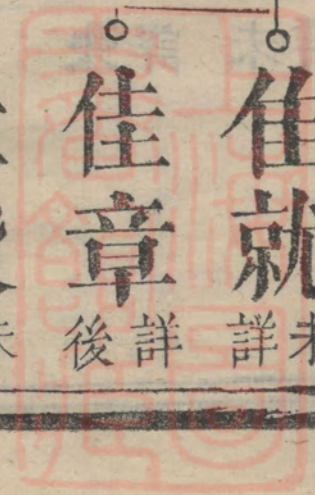 佳就未詳
佳章詳後